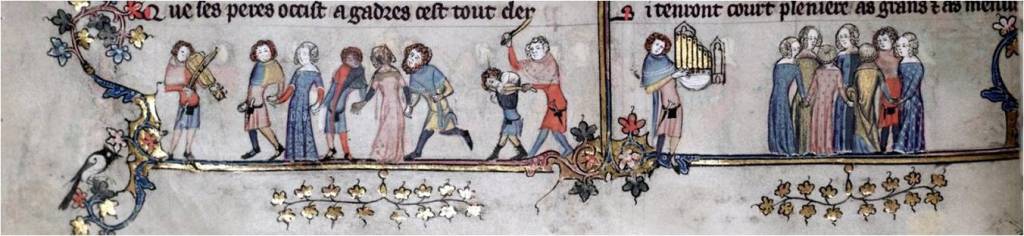 Que ses peres occist a gadres cest tout der
i tenront court pleniere as grans ⁊ as menus